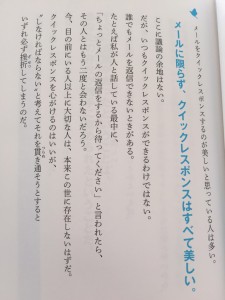 メールをクイックレスポンスするのが美しいと思っている人は多い。
メールに限らず、クイックレスポンスはすべて美しい。
ここに議論の余地はない。
だが、いつもクイックレスポンスができるわけではない。
メールを返信できないときがある。
たとえば私が人と話している最中に、
「ちょっとメールの返信をするから待ってください」と言われたら、
その人とはもう二度と会わないだろう。
今、目の前にいる人以上に大切な人は、本来この世に存在しないはずだ。
クイックレスポンスを心がけるのはいいが、
“しなければならない”と考えてそれを貫き通そうとすると
つらぬ
いずれ必ず挫折してしまうのだ。